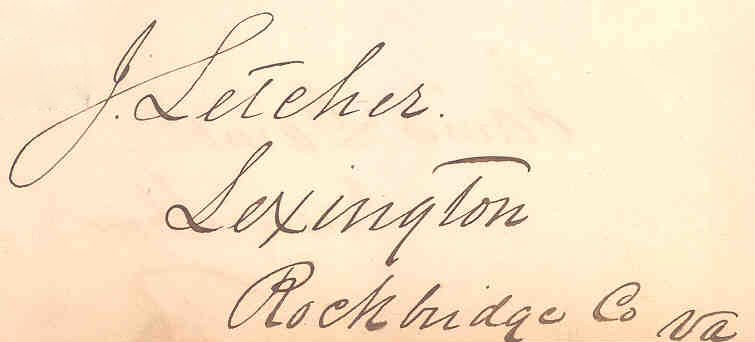 J. Letcher.
Lexington
Rockbridge Co Va